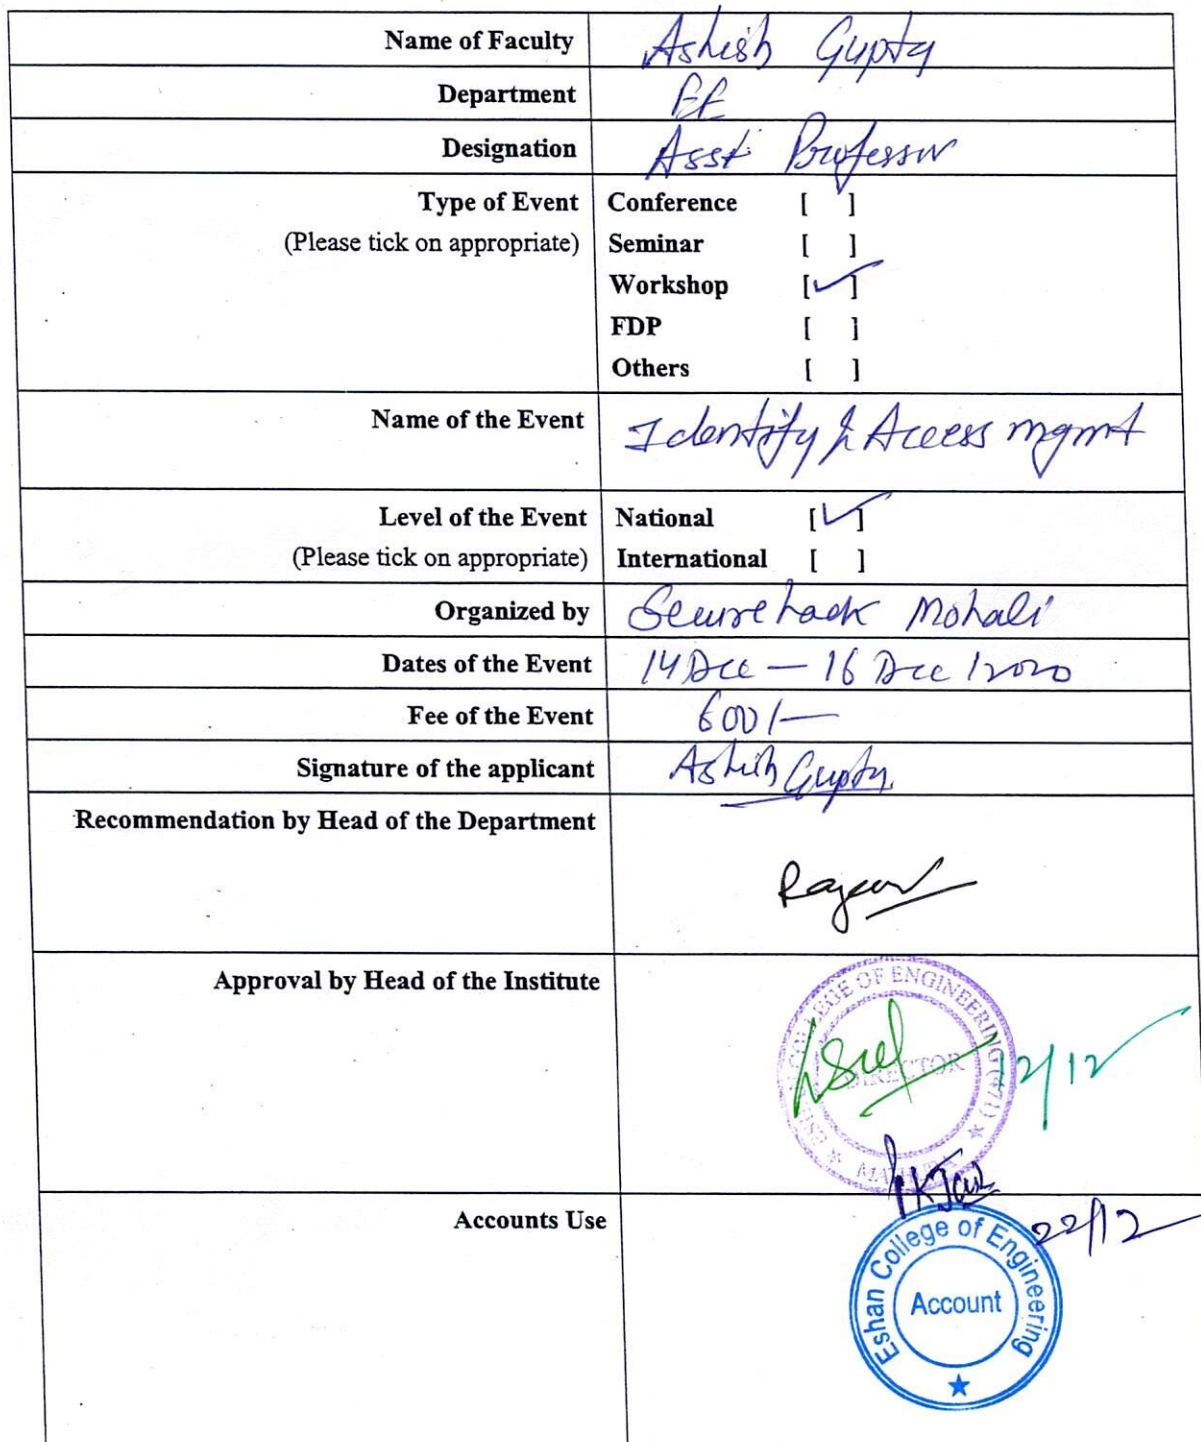 Name of Faculty Ashish Gupta
Department EE
Designation Asst. Professor
Type of Event Conference [ ]
(Please tick on appropriate) Seminar [ ]
Workshop [✓]
FDP [ ]
Others [ ]
Name of the Event Identify & Access mgmt
Level of the Event National [✓]
(Please tick on appropriate) International [ ]
Organized by Securehack Mohali
Dates of the Event 14 Dec — 16 Dec / 2020
Fee of the Event 600/—
Signature of the applicant Ashish Gupta
Recommendation by Head of the Department
Rajeev
Approval by Head of the Institute
ESHAN COLLEGE OF ENGINEERING (471)
DIRECTOR
MATHURA
12/12
PKJain
22/12
Accounts Use
Eshan College of Engineering
Account